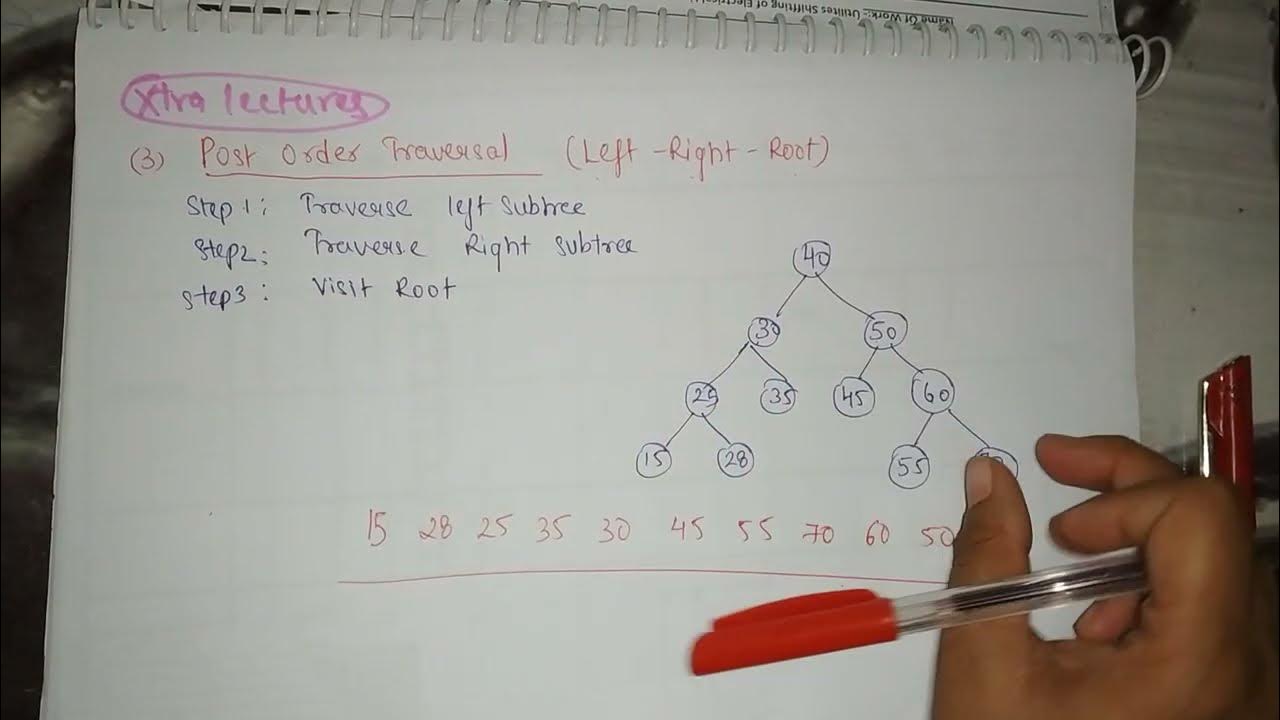 Name Of Work:- Utilites Shiffting of Electrical
Xtra lectures
(3) Post Order Traversal (Left-Right-Root)
Step 1: Traverse left subtree
Step2: Traverse Right subtree
Step3: Visit Root
40
30 50
25 35 45 60
15 28 55
15 28 25 35 30 45 55 70 60 50